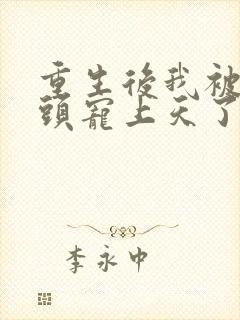 重生後我被
頭寵上天了
李永中